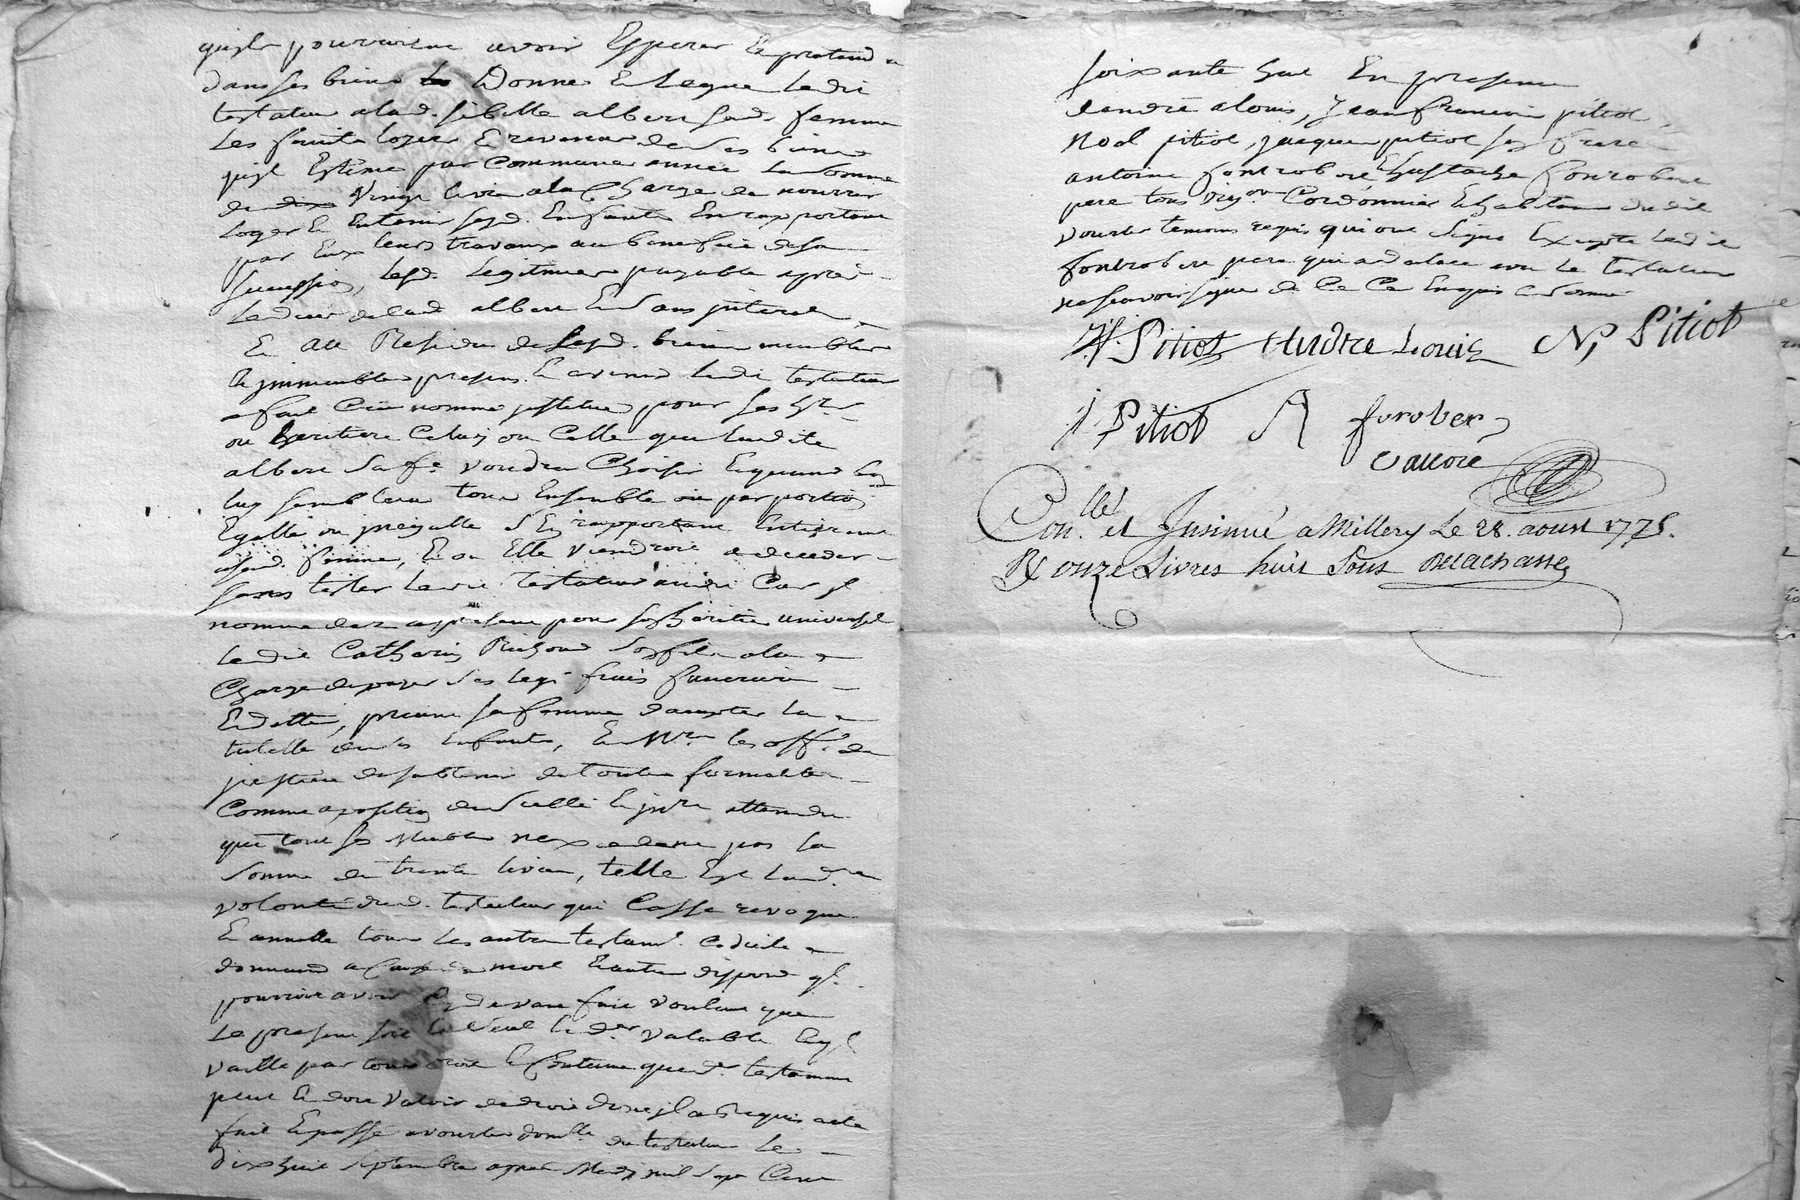 quils pourroient avoir Esperer Et pretendre
dans ses biens Donne Et Legue Ledit
testateur a lad. sibille albert sad. femme
Les fruits loyers Et revenus de ses biens
quil Estime par Commune année La somme
de vingt livres a la Charge de nourrir
Loger Et Entretenir sesd. Enfants En rapportant
par Eux leurs travaux au benefice de sa
succession, lesd. Legitimes payables après
Le deces de lad albert Et sans interets
Et au Residu de sesd. biens meubles
Et immeubles presens Et avenir Ledit testateur
a fait Créé nommé institue pour ses
ou heritiere Celuy ou Celle que Laditte
albert sa fe voudra Choisir Et quand bon
luy semblera tout Ensemble ou par portion
Egalle ou inegalle s'En rapportant Entierement
a sad. femme, Et ou Elle viendroit a deceder
sans tester Ledit testateur audit Cas il
nomme des a present pour son heritier universel
Ledit Catherin son fils a la
Charge de payer ses legs frais funeraires
Et dettes, prie sa femme d'accepter la
tutelle de ses Enfants, Et Mrs les offrs de
justice de s'abstenir de toutes formalites
Comme aposition de scellé Et invre attendu
que tous ses Meubles n'excedent pas la
somme de trente livres, telle Est La
volonté dud. testateur qui Casse revoque
Et annulle tous Les autres testamt. Codicile
donnation a Cause de mort Et autres disposons qil
pourroit avoir Cy devant fait voulant que
Le present soit le seul Et der valable Et qil
vaille par tout droit Et Coutume que dr testament
peut Et doit valoir de droit dont il a Requis acte
fait Et passé a vourles domlle du testateur Le
dix huit septembre après Midy mil sept Cent
soixante huit En presence
d'andré alouis, Jean francois pitiot,
Noel pitiot, jacques pitiot son frere
antoine fontrobert Et Eustache fontrobert
pere tous vigon Cordonnier Et habitans dudit
vourles temoins requis qui ont signé Excepté Ledit
fontrobert pere qui a declaré avec Le testateur
ne scavoir signer de Ce Enquis Et sommé
Pitiot Andre Louis N, Pitiot
J. Pitiot A forober
Conllé et Insinué a Millery Le 28. aoust 1775.
R onze Livres huit Sous Delachasse